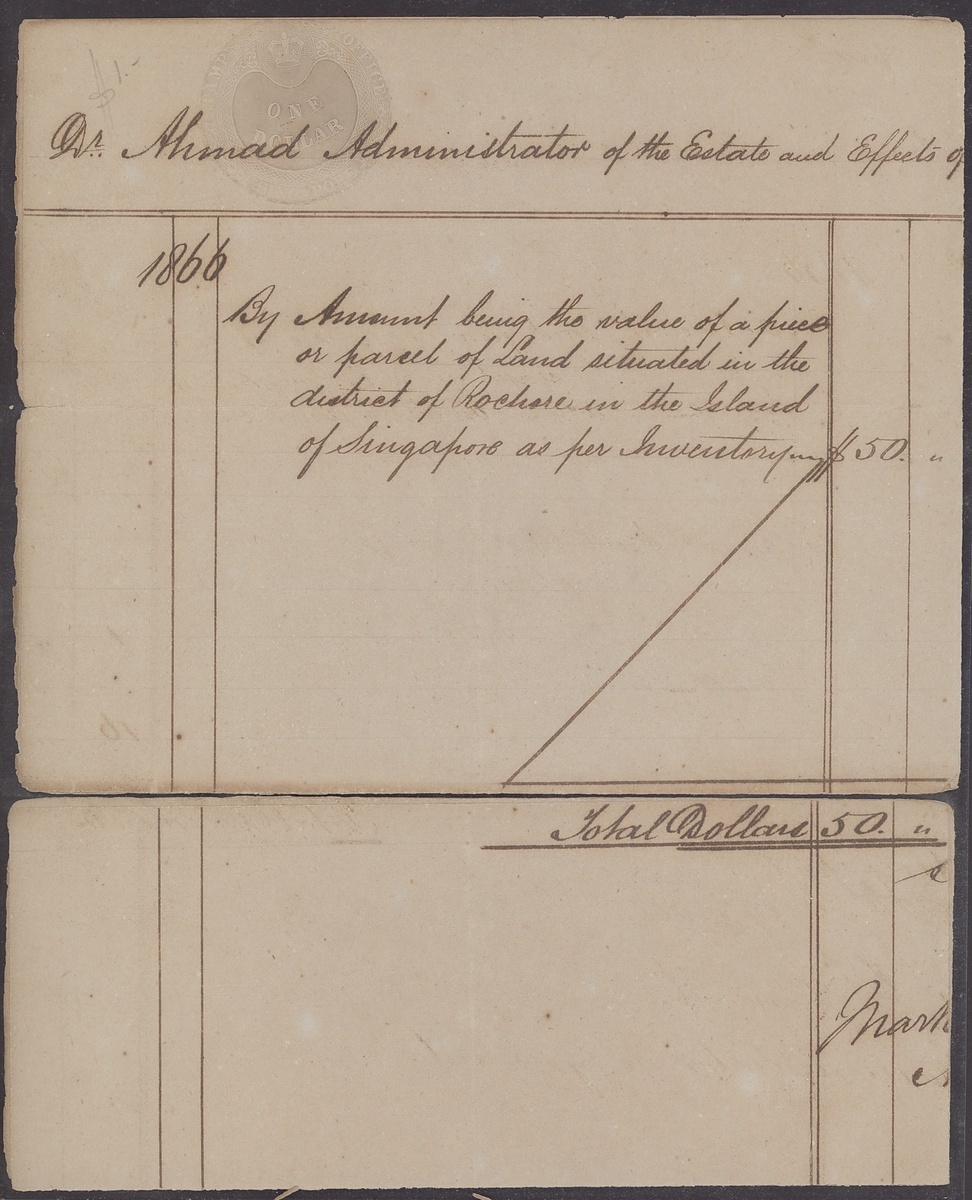 $1.-
STAMP OFFICE
ONE
DOLLAR
Dr. Ahmad Administrator of the Estate and Effects of
1866
By Amount being the value of a piece
or parcel of Land situated in the
district of Rochore in the Island
of Singapore as per Inventory $ 50. "
Total Dollars 50. "
Mark